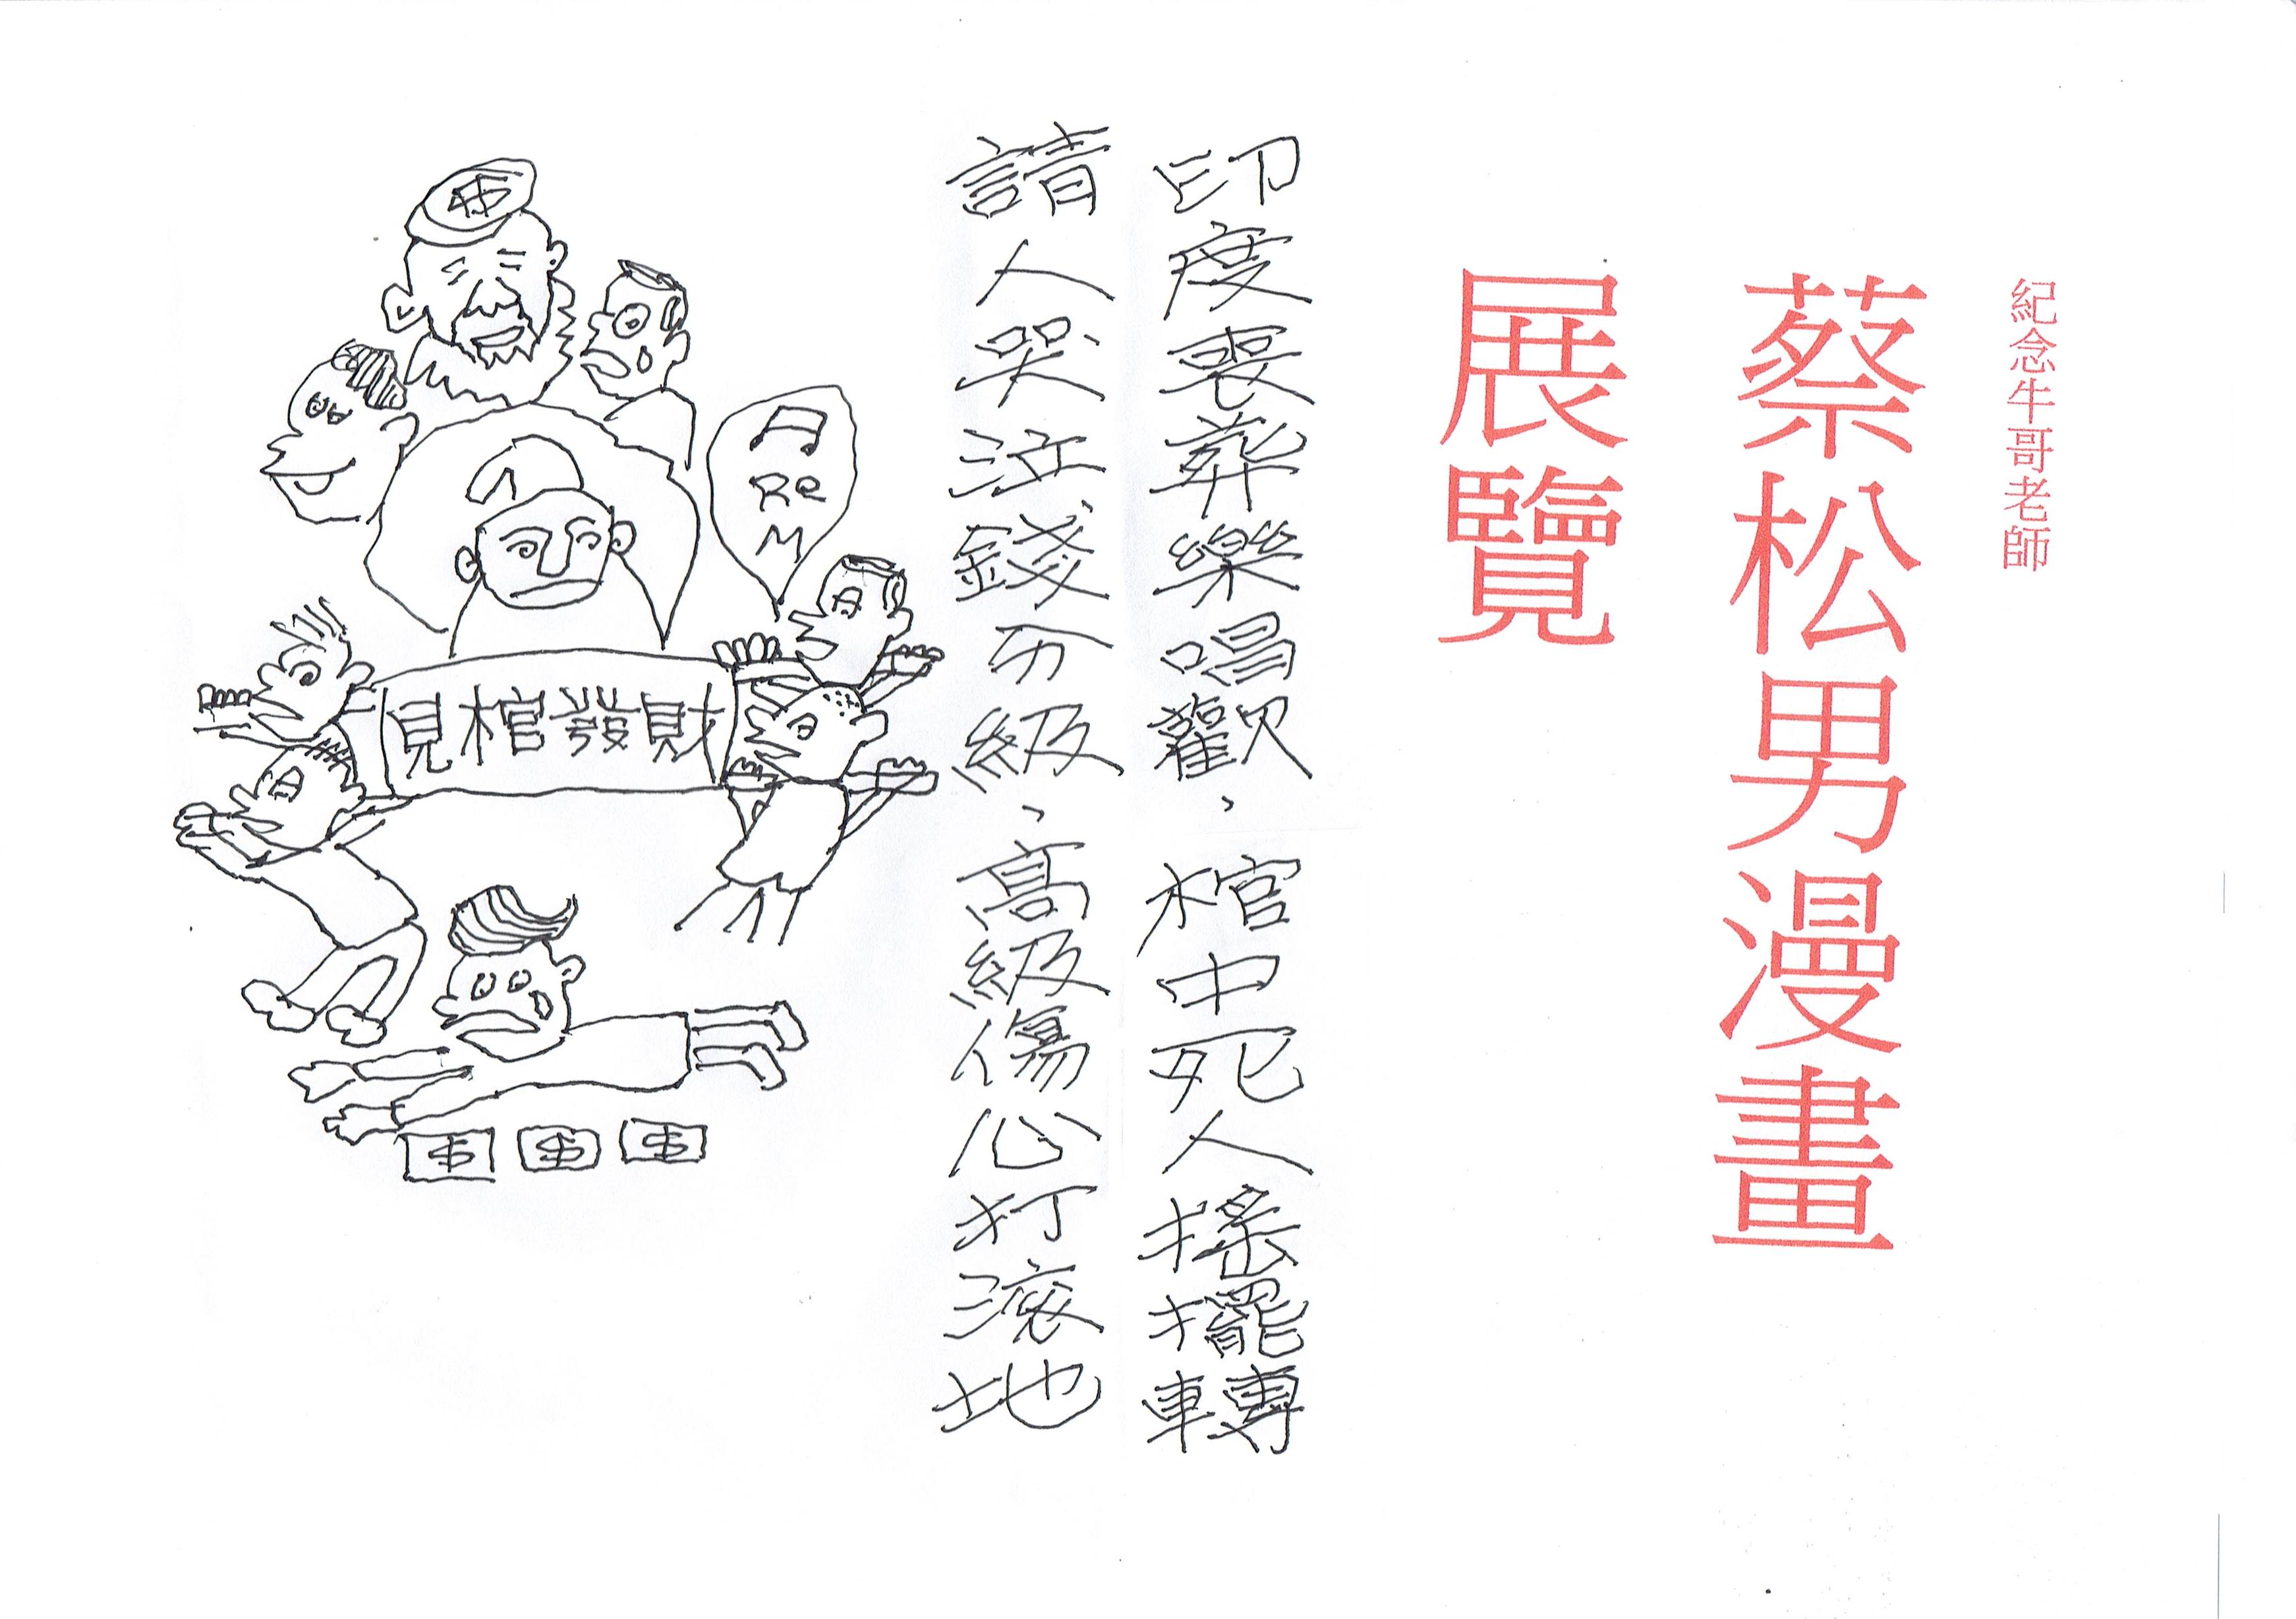 紀念牛哥老師
蔡松男漫畫
展覽
印度喪葬樂唱歡，棺中死人搖擺轉
請人哭泣錢分級，高級傷心打滾地
$
Re
M
見棺發財
$ $ $